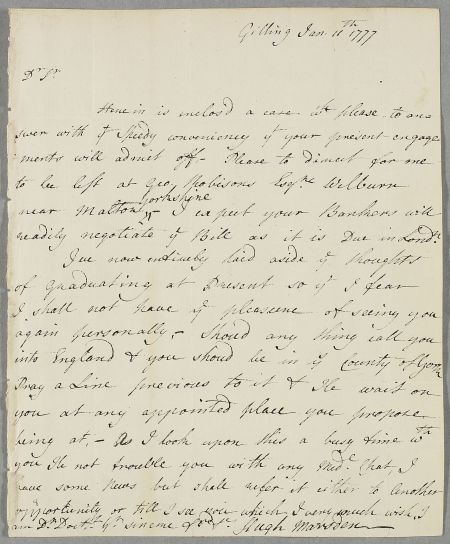 Gilling Jan. 11th 1777
Dr Sr
Herein is inclos'd a case wch please to an=
swer with ye Speedy conveniency yt your present engage
ments will admit off - Please to Direct for me
to be left at Geo, Robisons Esqr Welburn
near Malton, Yorkshire - I expect your Bankers will
readily negotiate ye Bill as it is Due in Londn
I've now entirely laid aside ye thoughts
of Graduating at Present so yt I fear
I shall not have ye pleasure of seeing you
again personally, - Should any thing call you
into England & you should be in ye County of York
Pray a Line previous to it & I'le wait on
you at any appointed place you propose
being at, - As I look upon this a busy time wth
you I'le not trouble you with any Med. Chat, I
have some News but shall refer it either to another
opportunity or till I see you which I very much wish, I
am Dr Doctr yr sincere Hugh Marsden